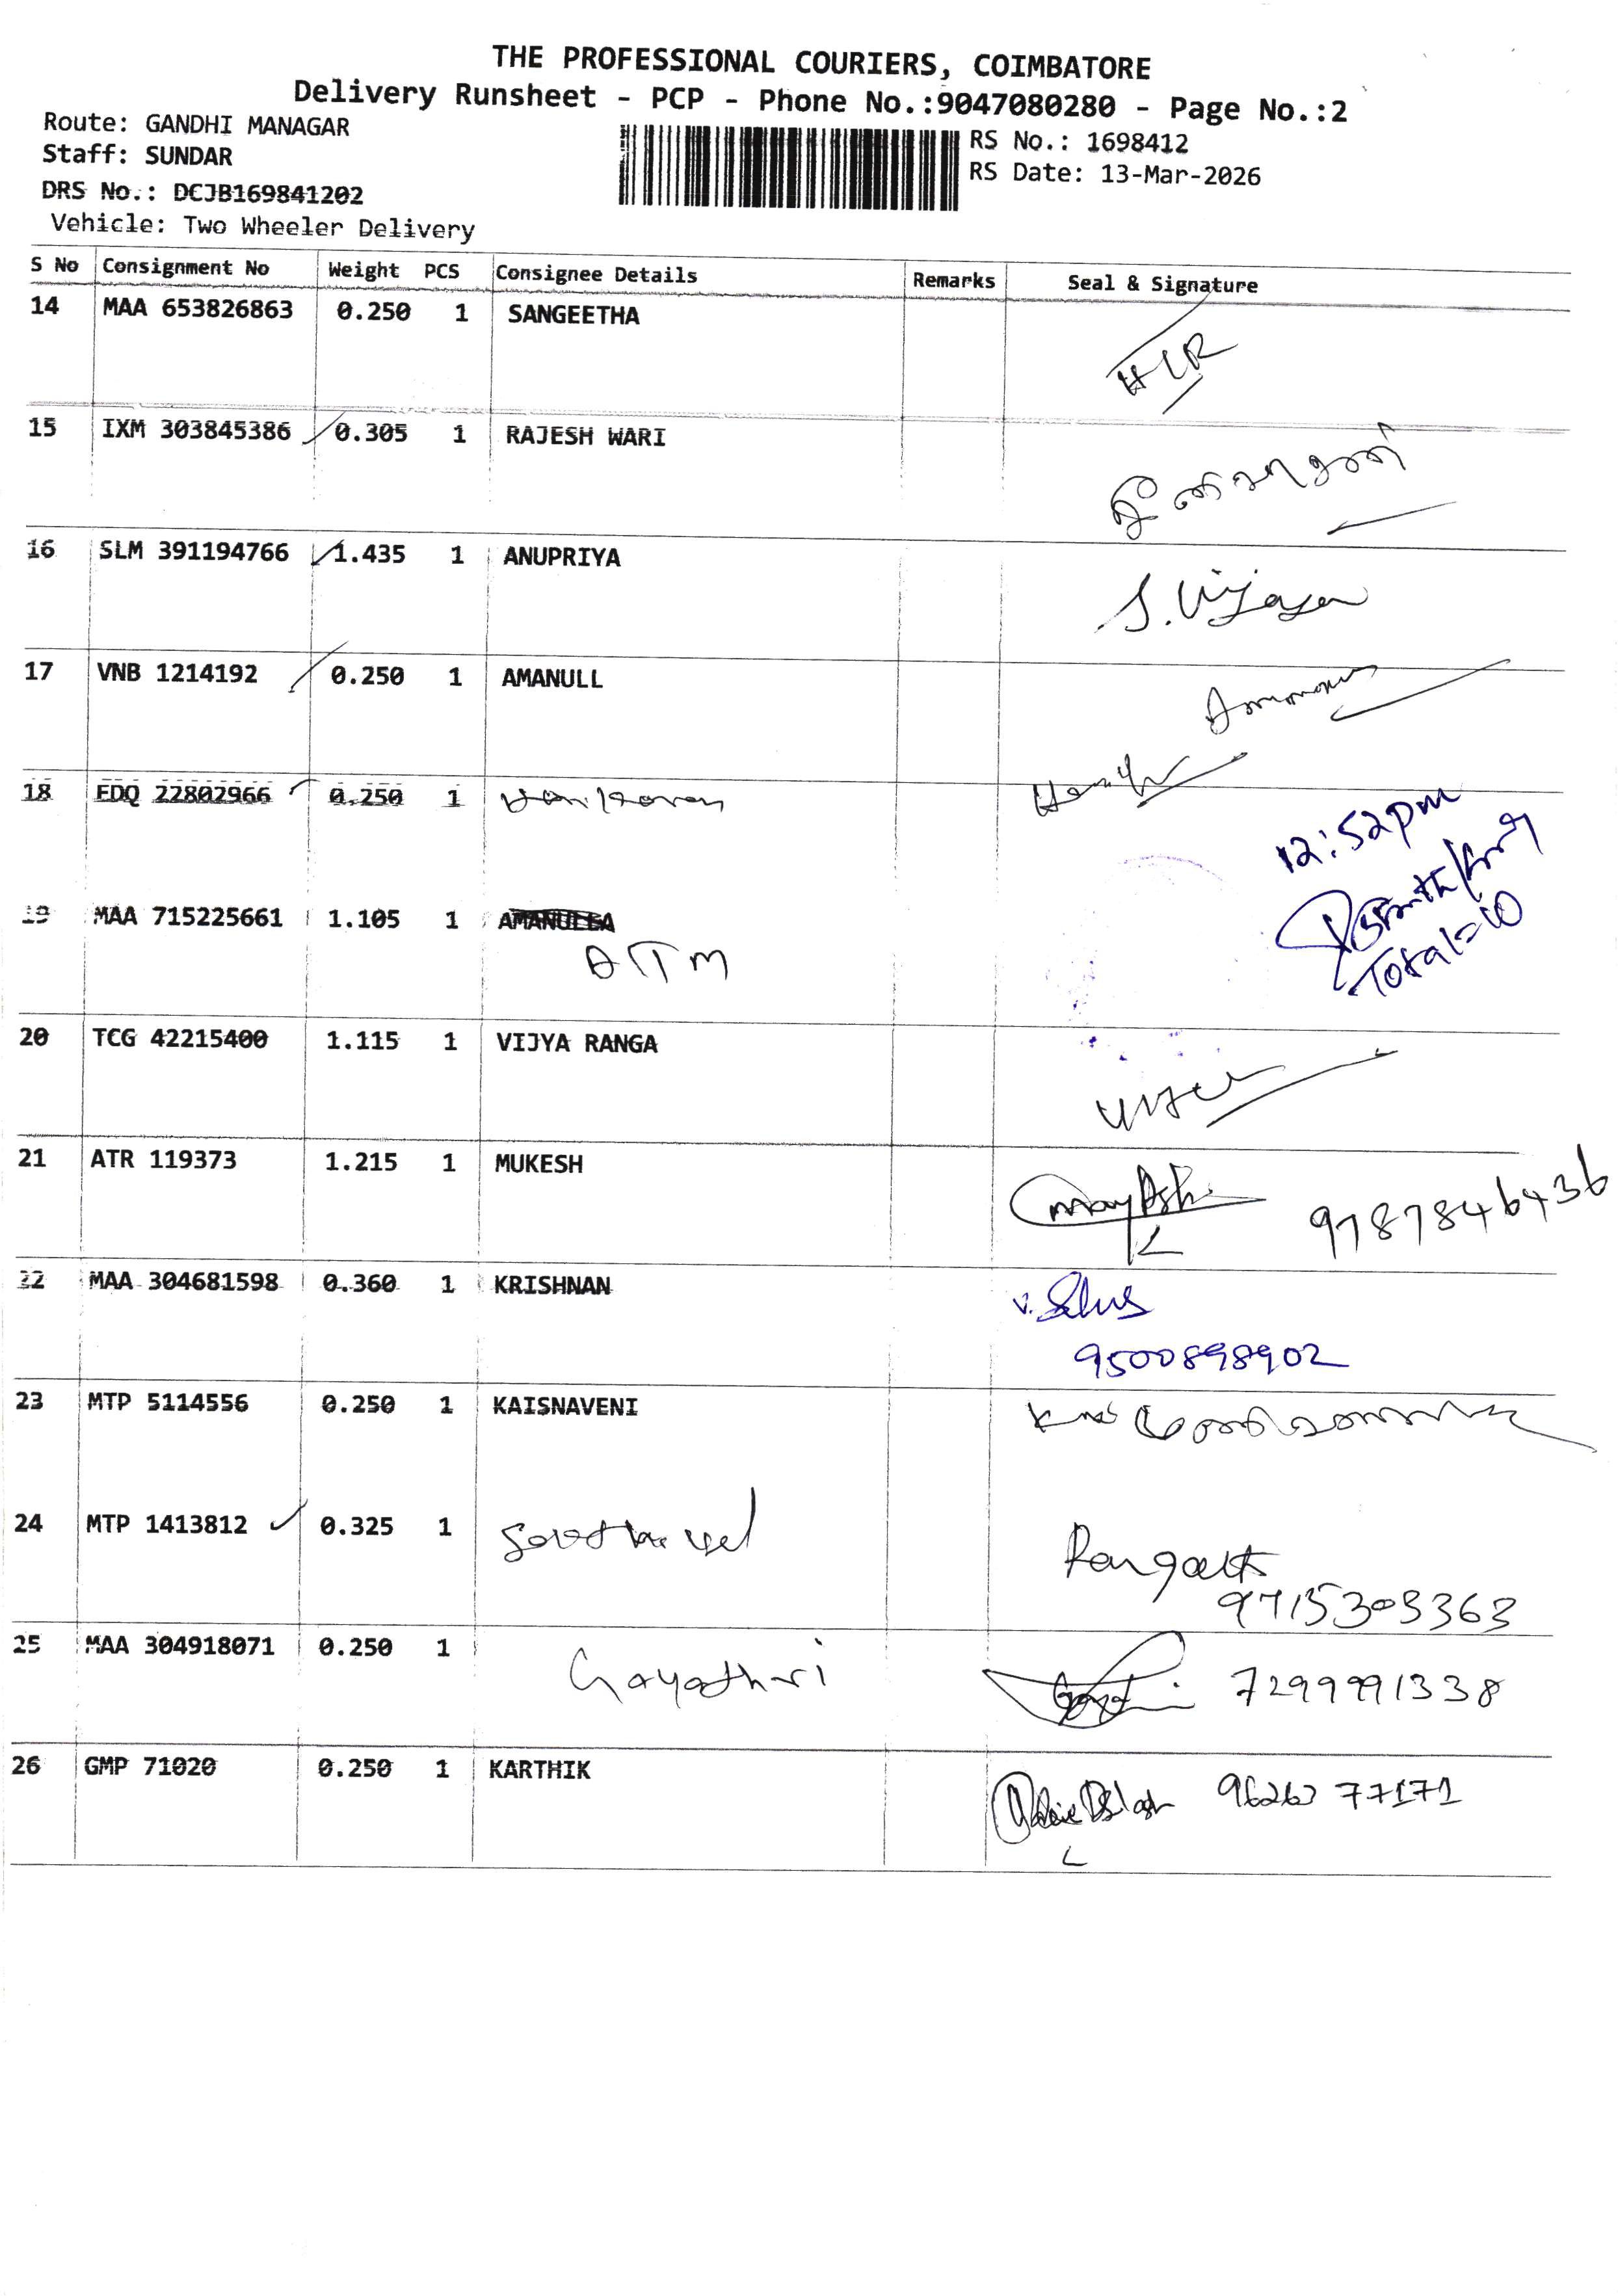 THE PROFESSIONAL COURIERS, COIMBATORE
Delivery Runsheet - PCP - Phone No.:9047080280 - Page No.:2
Route: GANDHI MANAGAR
Staff: SUNDAR
DRS No.: DCJB169841202
Vehicle: Two Wheeler Delivery
RS No.: 1698412
RS Date: 13-Mar-2026
S No Consignment No Weight PCS Consignee Details Remarks Seal & Signature
14 MAA 653826863 0.250 1 SANGEETHA
15 IXM 303845386 0.305 1 RAJESH WARI
16 SLM 391194766 1.435 1 ANUPRIYA S.Vijaya
17 VNB 1214192 0.250 1 AMANULL
18 EDQ 22802966 0.250 1
12:52pm
19 MAA 715225661 1.105 1
Total=10
20 TCG 42215400 1.115 1 VIJYA RANGA
21 ATR 119373 1.215 1 MUKESH 9787846436
22 MAA 304681598 0.360 1 KRISHNAN
9500898902
23 MTP 5114556 0.250 1 KAISNAVENI
24 MTP 1413812 0.325 1
9715303363
25 MAA 304918071 0.250 1 Gayathri 7299991338
26 GMP 71020 0.250 1 KARTHIK 77171